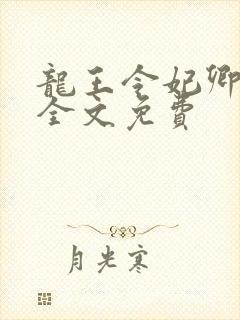 龍王令妃卿
全文免費
月光寒